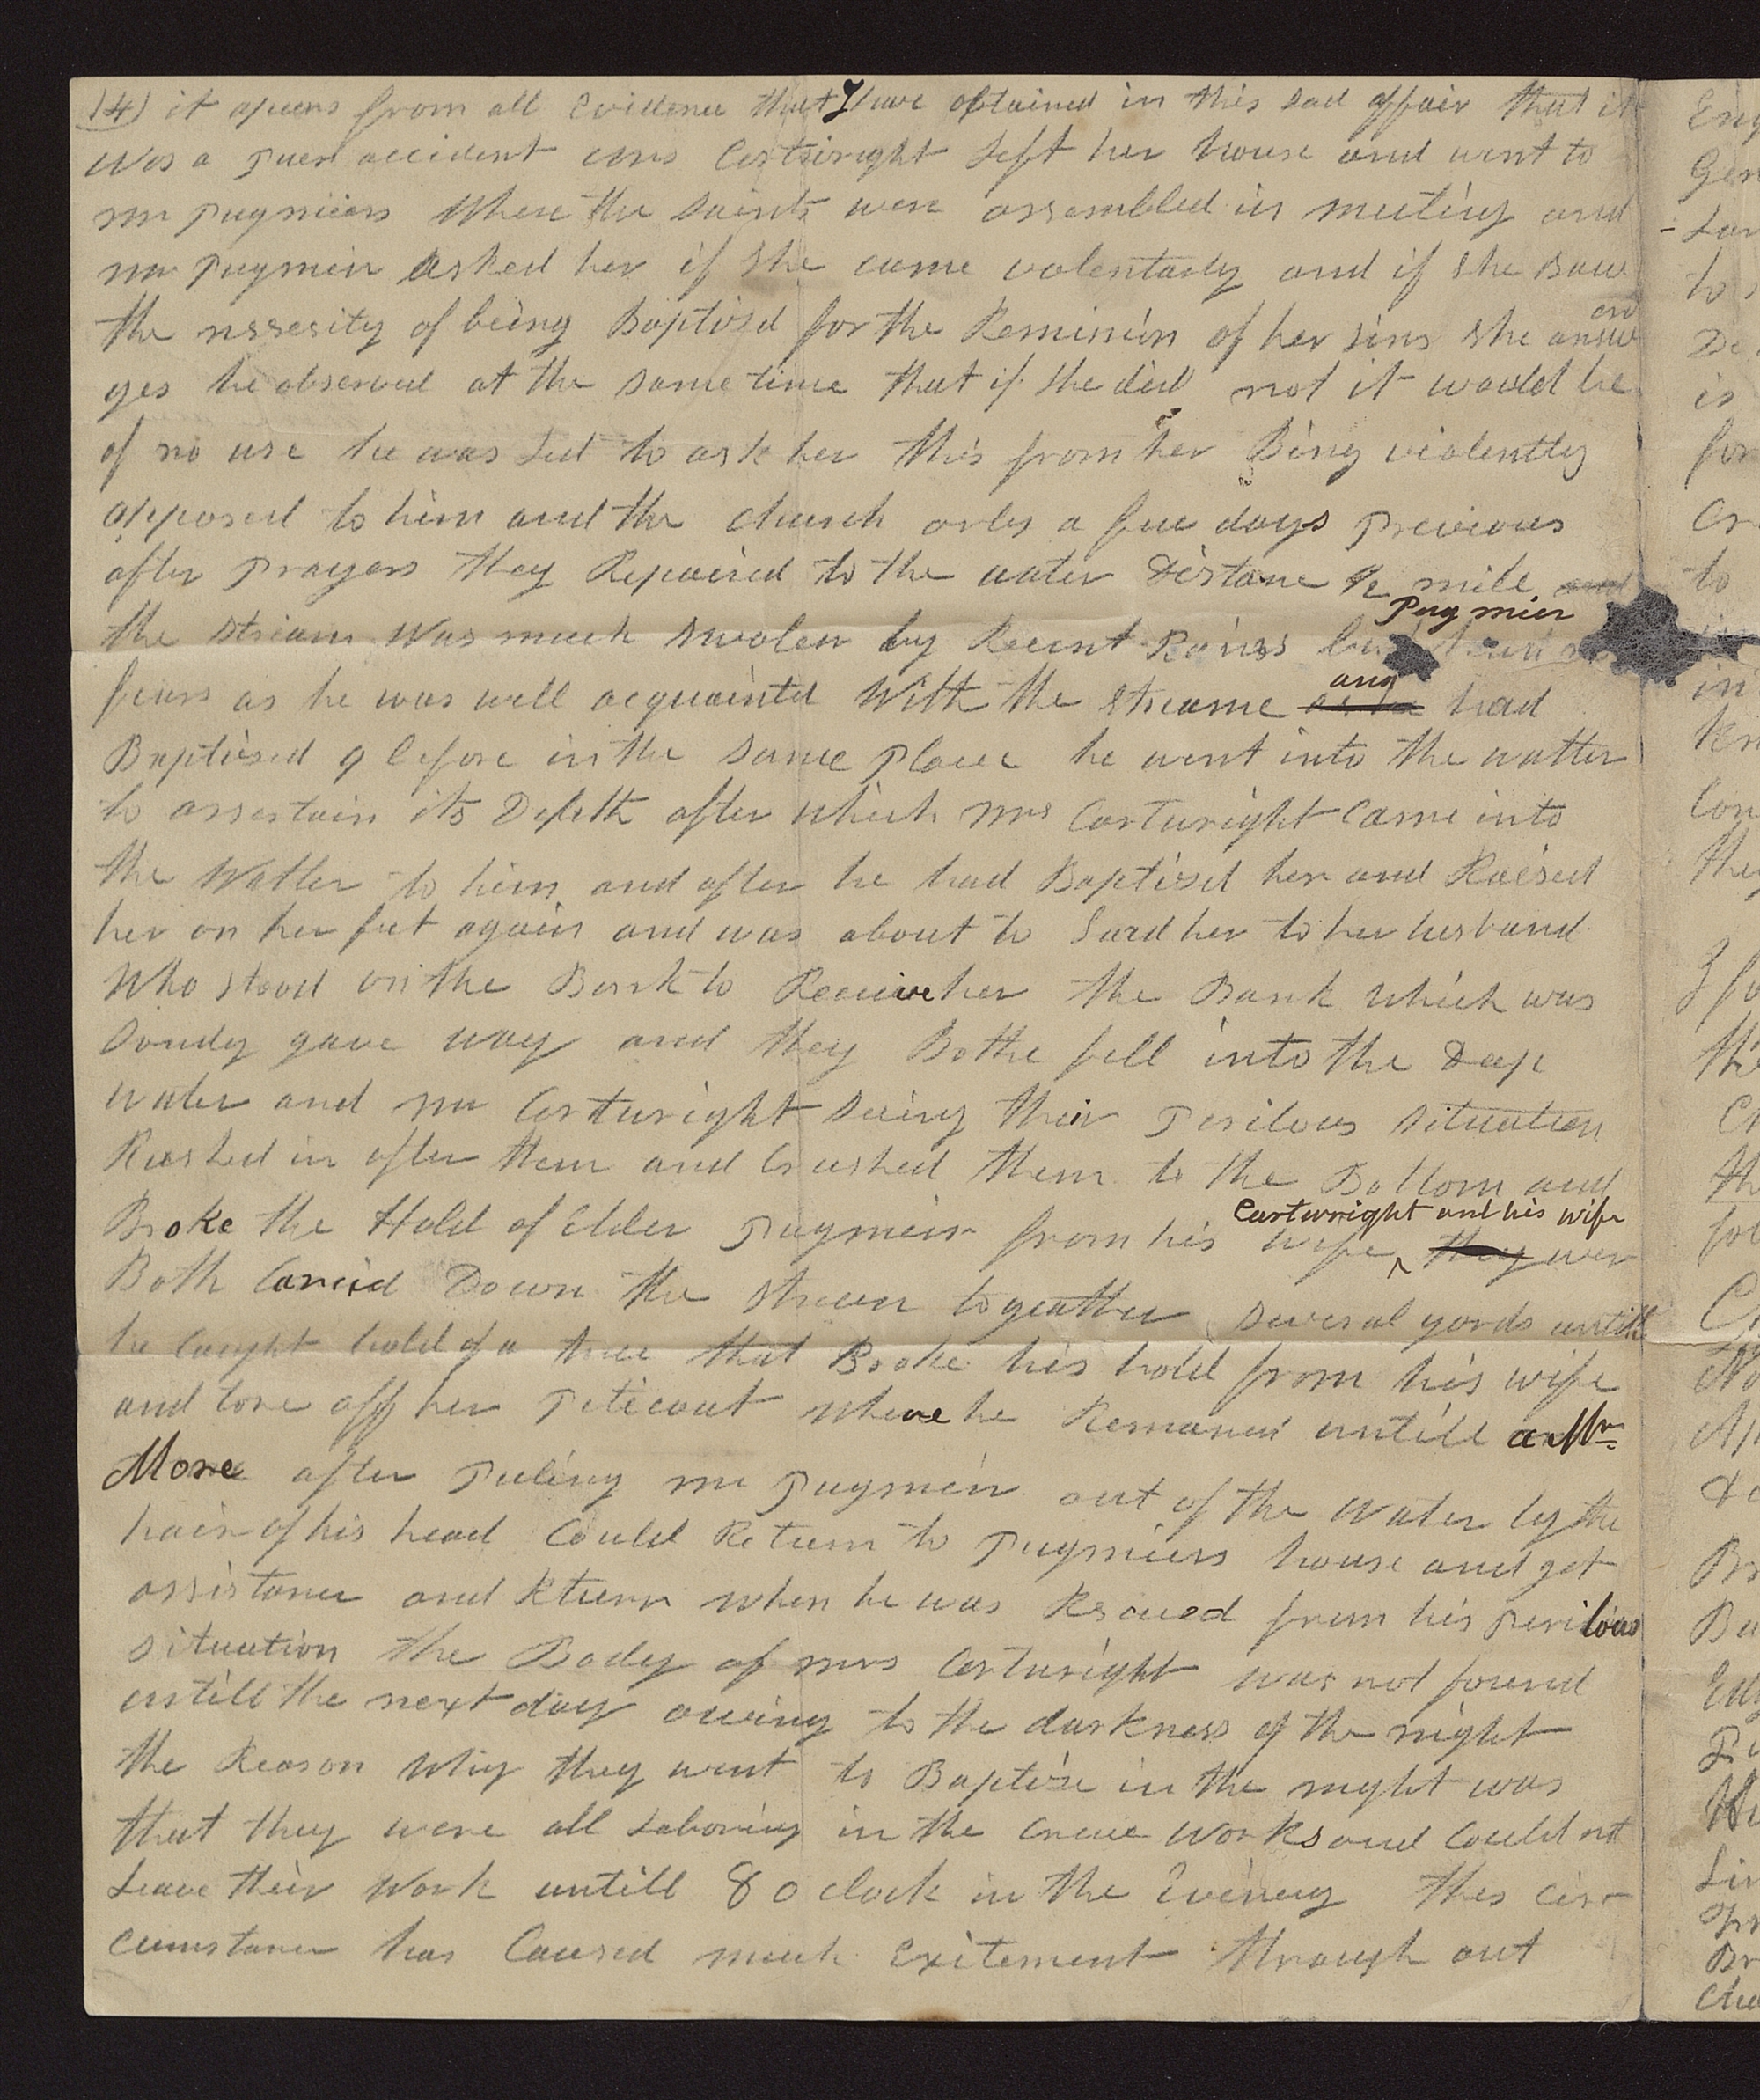 14) it apears from all Evidence that I have obtained in this sad affair that it
was a puer accident mrs Cartwright left her house and went to
mr Pugmiers Where the Saints were assembled in meeting and
mr Pugmier asked her if she came volentarly and if she saw
the nssesity of being Baptisd for the Remission of her sins she answ ered
yes he observed at the same time that if she did not it would be
of no use he was Led to ask her this from her Bing violently
opposed to him and the church only a few days Previous
after Prayers they Repaired to the water Distance 1/2 mile and
the stream was much swolen by Recent Rains but Pugmier had no
fears as he was well acquainted With the Streame as he and had
Baptised 9 before in the same Place he went into the watter
to assertain its Depth after which mrs Cartwright Came into
the Watter to him and after he had Baptisd her and Raised
her on her feet again and was about to Lead her to her husband
Who stood on the Bank to Receive her the Bank which was
Sandy gave way and they Bothe fell into the Deep
water and mr Cartwright seeing their Perilous situation
Rushed in after them and Crushed them to the Bottom and
Broke the Hold of Elder Pugmeir from his wife they Cartwright and his wife wer
Both Carried Down the stream togeather several yards untill
he caught hold of a tree that Broke his hold from his wife
and tore off her Peticoat where he Remained untill a Mr
More after Puling mr Pugmeir out of the Water by the
hair of his head Could Return to Pugmiers house and get
assistance and Return when he was Rescued from his Perilous
situation the Body of mrs Cartwright was not found
untill the next day owing to the darkness of the night
the Reason Why they went to Baptise in the night was
that they were all Laboring in the Works and Could not
Leave their Work untill 8 o clock in the Evening this Cir-
cumstance has Caused much Exitement through out
Gen
to
is
for
to
in
Con
they